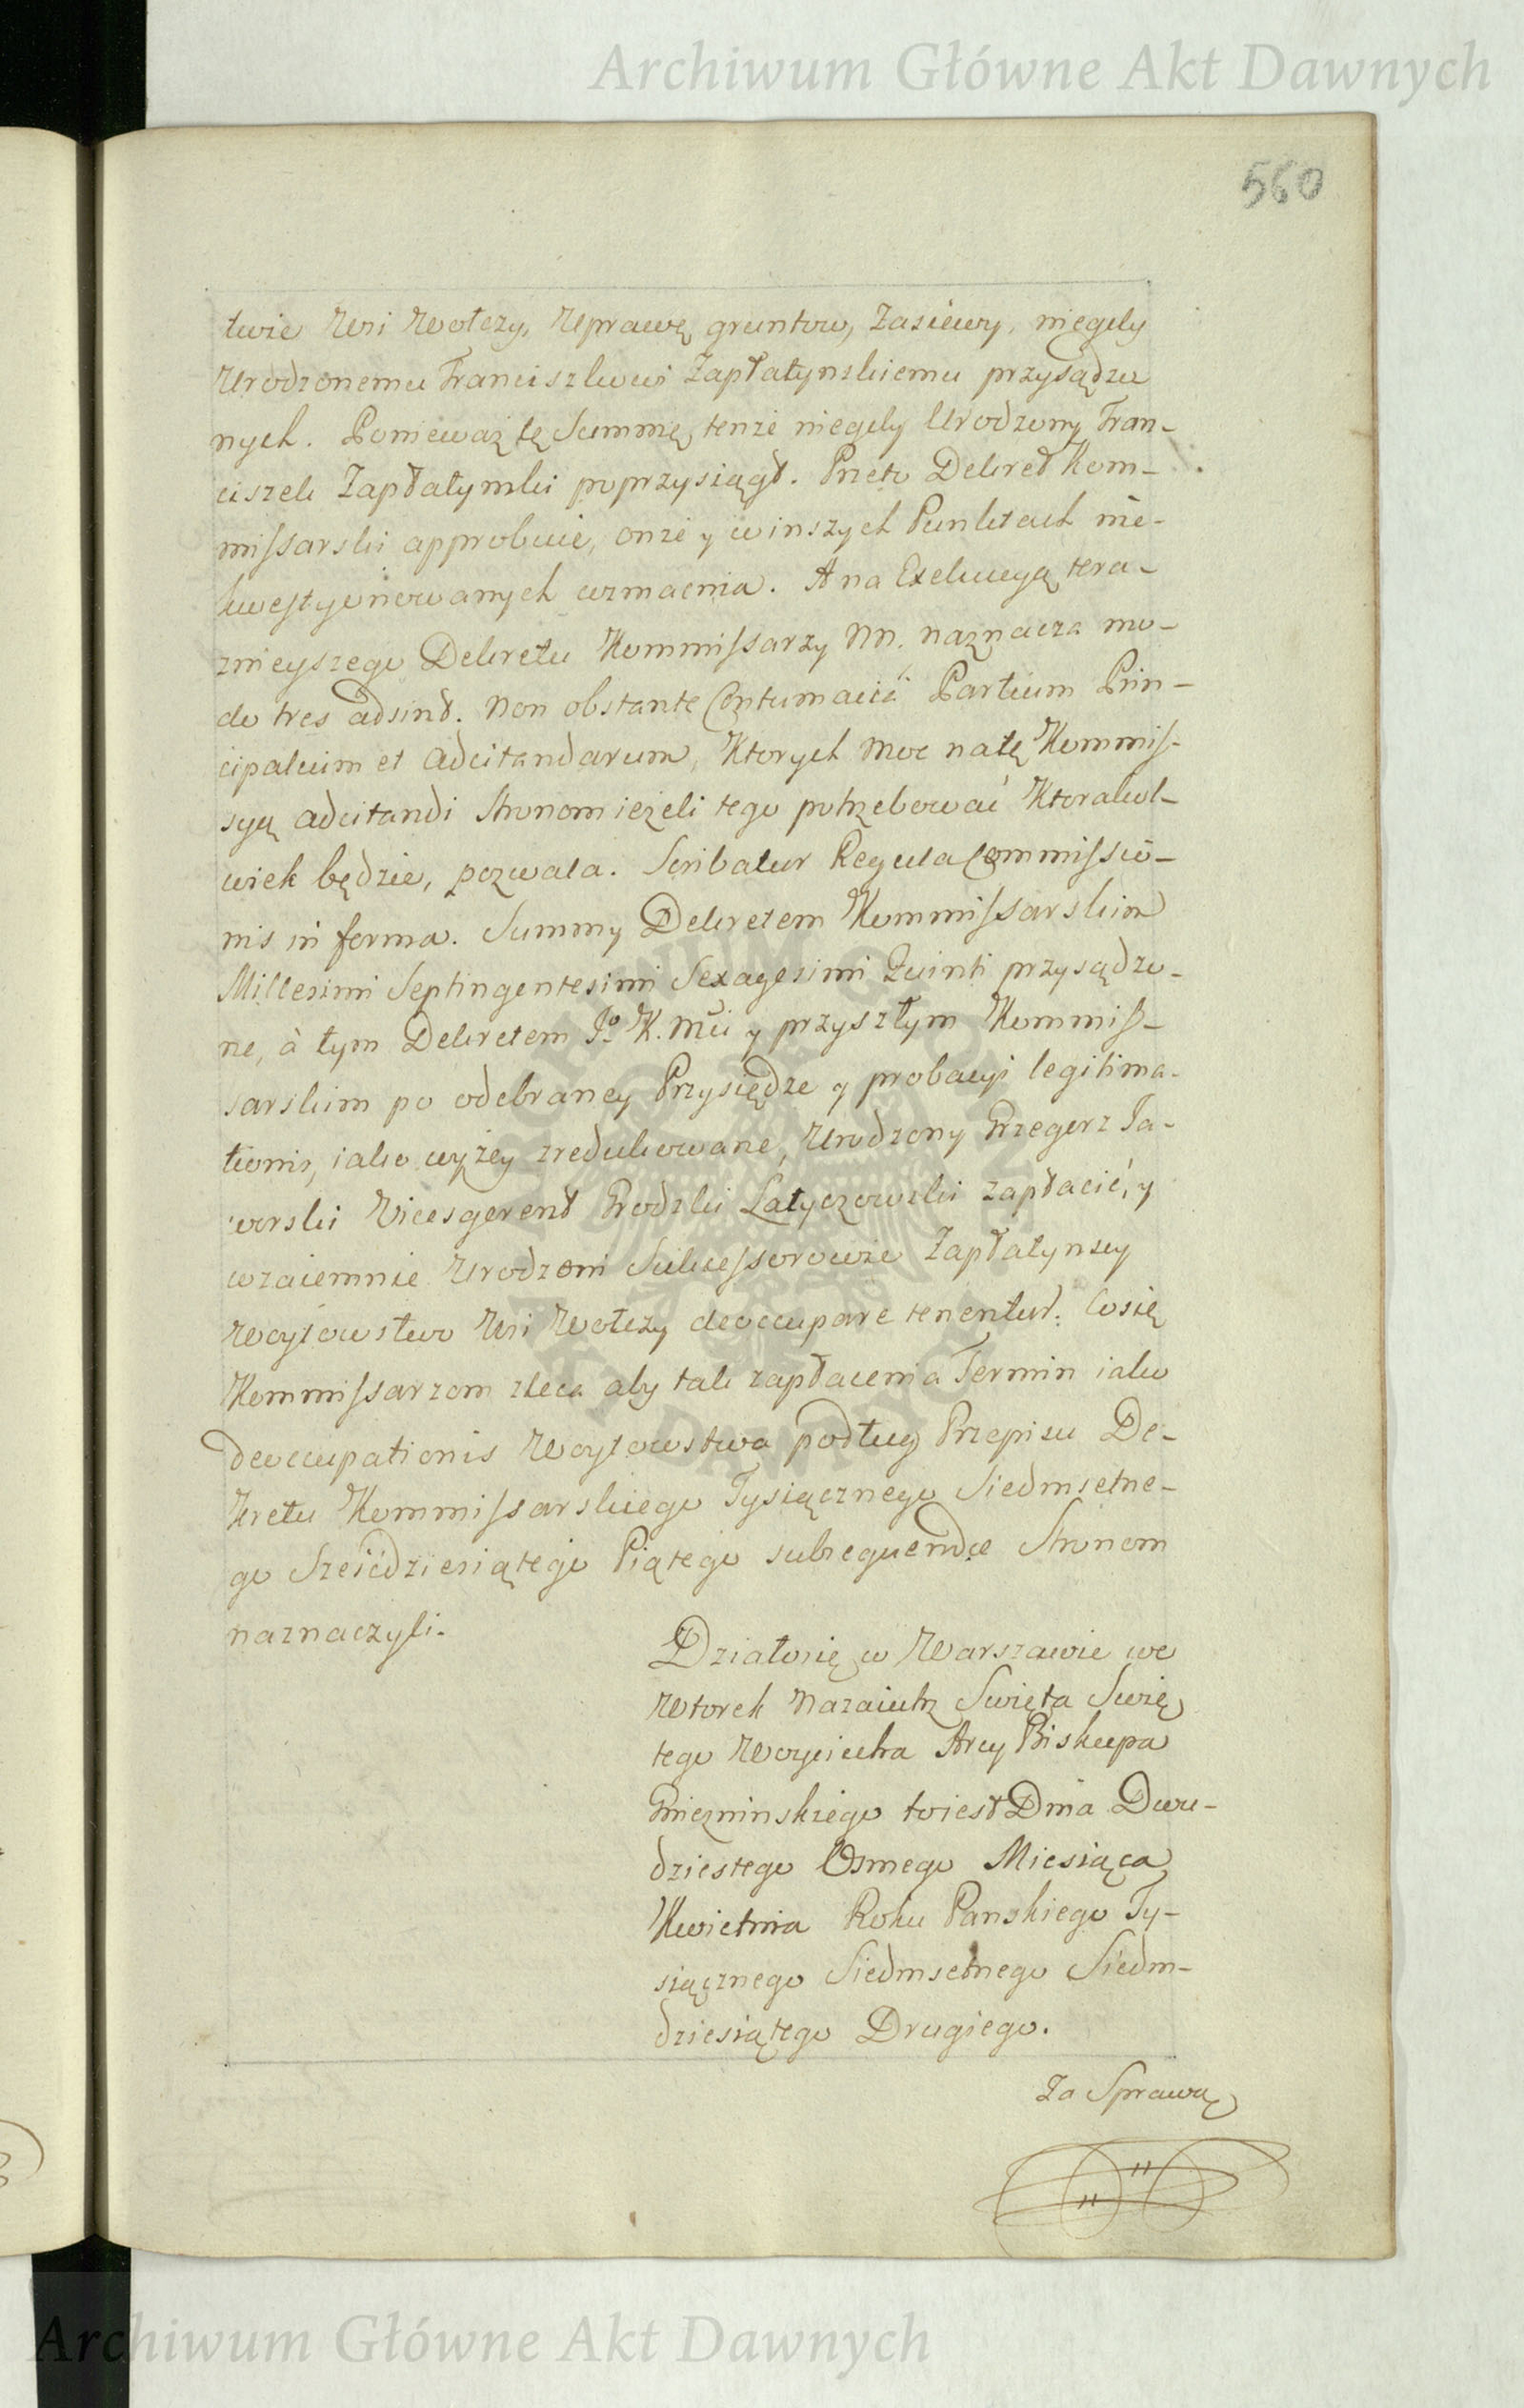 Archiwum Główne Akt Dawnych
560
twie Wsi Wołczy, Uprawę gruntow, Zasiewy, niegdy
Urodzonemu Franciszkowi Zapłatynskiemu przysądzo
nych. Ponieważ tę Summę tenże niegdy Urodzony Fran-
ciszek Zapłatynski poprzysiągł. Przeto Dekret Kom-
missarski approbuie, onże y w inszych Punktach nie-
kwestyonowanych wzmacnia. A na Exekucyą tera-
znieyszego Dekretu Kommissarzy NN. naznacza mo-
do tres adsint. Non obstante Contumaciâ Partium Prin-
cipalium et adcitandarum, Ktorych moc natę Kommis-
syą adcitandi Stronom ieżeli tego potrzebować Ktorakol-
wiek będzie, pozwala. Scribatur Regula Commissio-
nis in forma. Summy Dekretem Kommissarskim
Millesimi Septingentesimi Sexagesimi Quinti przysądzo-
ne, à tym Dekretem Jº K. Mci y przyszłym Kommis-
sarskim po odebraney Przysiędze y probacyi legitima-
tionis, iako wyżey zredukowane, Urodzony Grzegorz Ja-
worski Vicesgerent Grodzki Latyczowski zapłacić, y
wzaiemnie Urodzeni Sukcessorowie Zapłatynscy
Woytowstwo Wsi Wołczy deoccupare tenentur. Co się
Kommissarzom zleca aby tak zapłacenia Termin iako
deoccupationis Woytowstwa podług Przepisu De-
kretu Kommissarskiego Tysiącznego Siedmsetne-
go Sześćdziesiątego Piątego subsequendce Stronom
naznaczyli.
Działosię w Warszawie we
Wtorek Nazaiutrz Swięta Swię
tego Woyciecha Arcy Biskupa
Gniezninskiego toiest Dnia Dwu-
dziestego Osmego Miesiąca
Kwietnia Roku Panskiego Ty-
siącznego Siedmsetnego Siedm-
dziesiątego Drugiego.
Za Sprawą
ARCHIWUM GŁÓWNE AKT DAWNYCH
Archiwum Główne Akt Dawnych